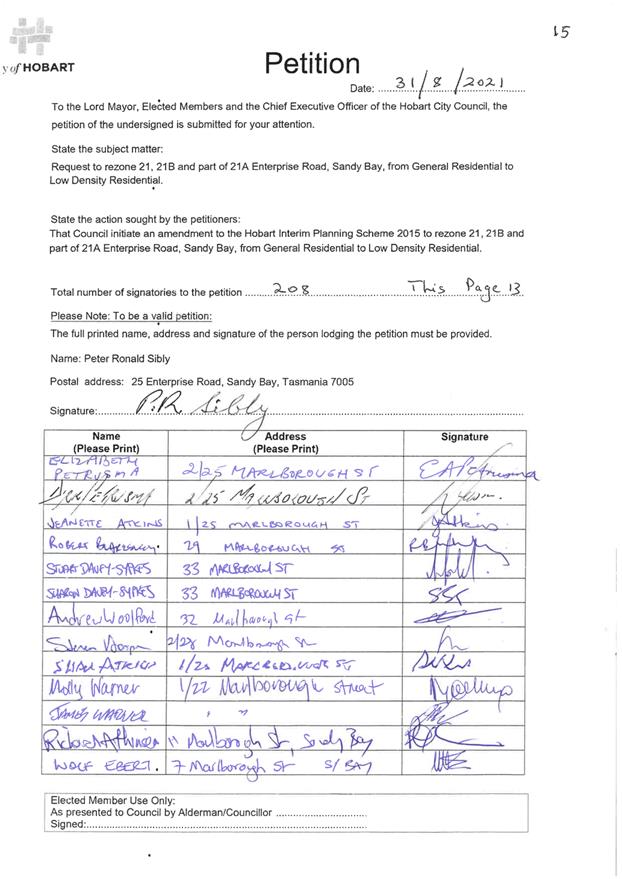 15
y of HOBART
Petition
Date: 31/8/2021
To the Lord Mayor, Elected Members and the Chief Executive Officer of the Hobart City Council, the
petition of the undersigned is submitted for your attention.
State the subject matter:
Request to rezone 21, 21B and part of 21A Enterprise Road, Sandy Bay, from General Residential to
Low Density Residential.
State the action sought by the petitioners:
That Council initiate an amendment to the Hobart Interim Planning Scheme 2015 to rezone 21, 21B and
part of 21A Enterprise Road, Sandy Bay, from General Residential to Low Density Residential.
Total number of signatories to the petition 208 This Page 13
Please Note: To be a valid petition:
The full printed name, address and signature of the person lodging the petition must be provided.
Name: Peter Ronald Sibly
Postal address: 25 Enterprise Road, Sandy Bay, Tasmania 7005
Signature: P.R Sibly
Name Address Signature
(Please Print) (Please Print)
ELIZABETH
PETRUSMA 2/25 MARLBOROUGH ST
2/25 MARLBOROUGH ST
JEANETTE ATKINS 1/25 MARLBOROUGH ST JAtkins
ROBERT 29 MARLBOROUGH ST
STUART DAVEY-SYKES 33 MARLBOROUGH ST
SHARON DAVEY-SYKES 33 MARLBOROUGH ST
Andrew Woolford 32 Marlborough St
2/28 Marlborough St
ATKINS 1/25 MARLBOROUGH ST
Molly Warner 1/22 Marlborough Street
JAMES WARNER " "
Richard Atkinson 11 Marlborough St, Sandy Bay
WOLF EBERT. 7 Marlborough St S/BAY
Elected Member Use Only:
As presented to Council by Alderman/Councillor
Signed: